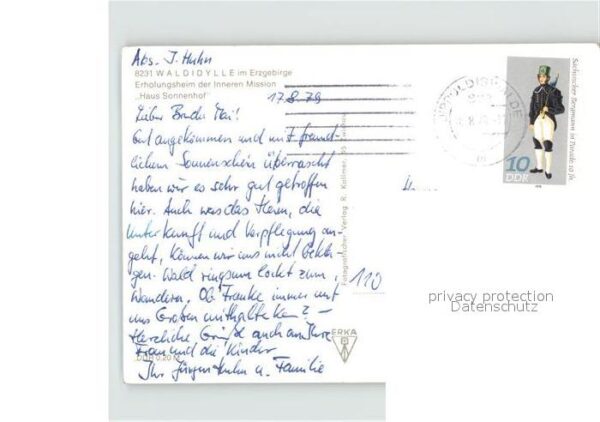 Abs. J. Huhn
8231 WALDIDYLLE im Erzgebirge
Erholungsheim der Inneren Mission
„Haus Sonnenhof"
17.8.79
Lieber Bruder Mai!
Gut angekommen und mit freund-
lichem Sonnenschein überrascht
haben wir es sehr gut getroffen
hier. Auch was das Heim, die
Unterkunft und Verpflegung an-
geht, können wir uns nicht bekla-
gen. Wald ringsum lockt zum
Wandern. Ob Frauke immer mit
uns Großen mithalten kann? –
Herzliche Grüße auch an Ihre
Frau und die Kinder
DDR 0,20 M
Ihr Jürgen Huhn u. Familie
Fotografischer Verlag R. Kallmer, Zwickau
110
ERKA
Sächsischer Bergmann in Parade
10
DDR
privacy protection
Datenschutz